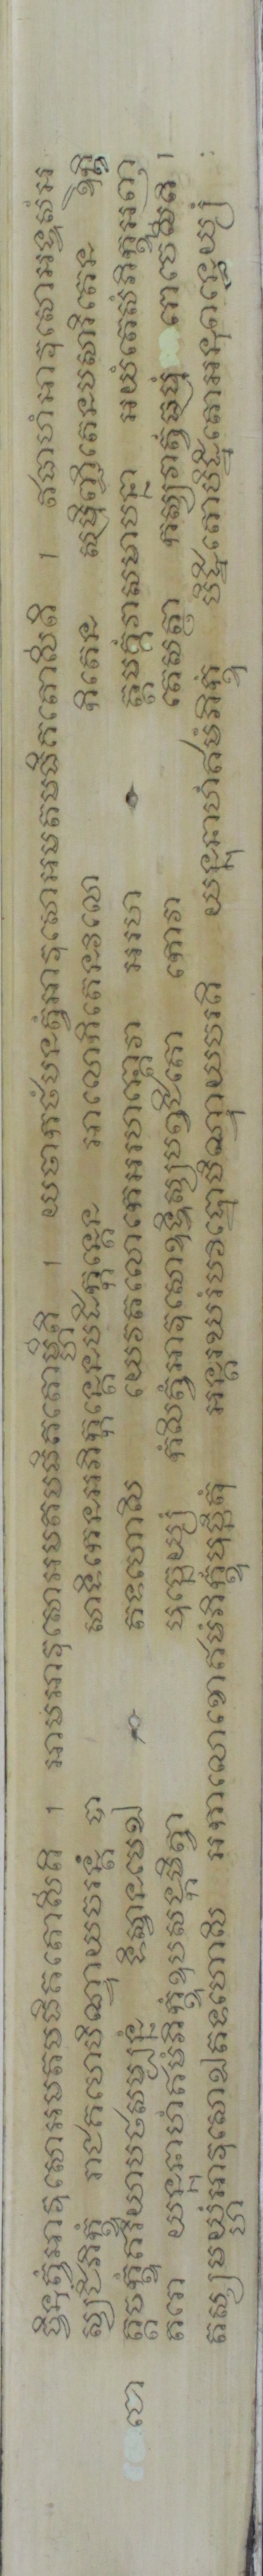 ច្ចិនុត្វំអាវុសោអមតមធិគតោសីតិ ។ អាមអាវុសោអមតមធិគតោម្ហីតិ ។ យថាកថំបនត្វំអាវុសោអមតមធិគតោសីតិ ។ ឥធាហំអាវុសោអទ្ទសំអ
ស្សជិំភិក្ខុំ រាជគហេបិណ្ឌាយចរន្តំ បា សាទិកេនអភិក្កន្តេនបដិក្កន្តេន អាលោកិតេនវិលោ កិតេន សម្មិញ្ជិតេនបសារិតេន ឱក្ខិ
ត្តចក្ខុំឥរិយាបថសម្បន្នំ ទិស្វានមេឯ តទហោសិ យេវតលោកេអរហន្តោវា អរហា ត្តមគ្គំវាសមាបន្នា អយំតេសំភិក្ខុអញ្ញ
តរោ យន្នូនាហំឥមំភិក្ខុំឧបសង្កមិត្វា បុច្ឆេយ្យំ កំសិត្វំអាវុសោឧទ្ទិស្សបព្វជិតោ កោវា តេសត្ថា កស្សវាត្វំធម្មំ រោចេសីតិ ។
តស្សមយ្ហំអាវុសោឯតទហោសិ អកាលោខោឥមំភិក្ខុំបុច្ឆិតុំ អន្តរឃរំបវិដ្ឋោបិណ្ឌាយចរតិ យន្នូនាហំឥមំភិក្ខុំ បិដ្ឋិតោបិដ្ឋិតោអនុពន្ធេយ្យំ